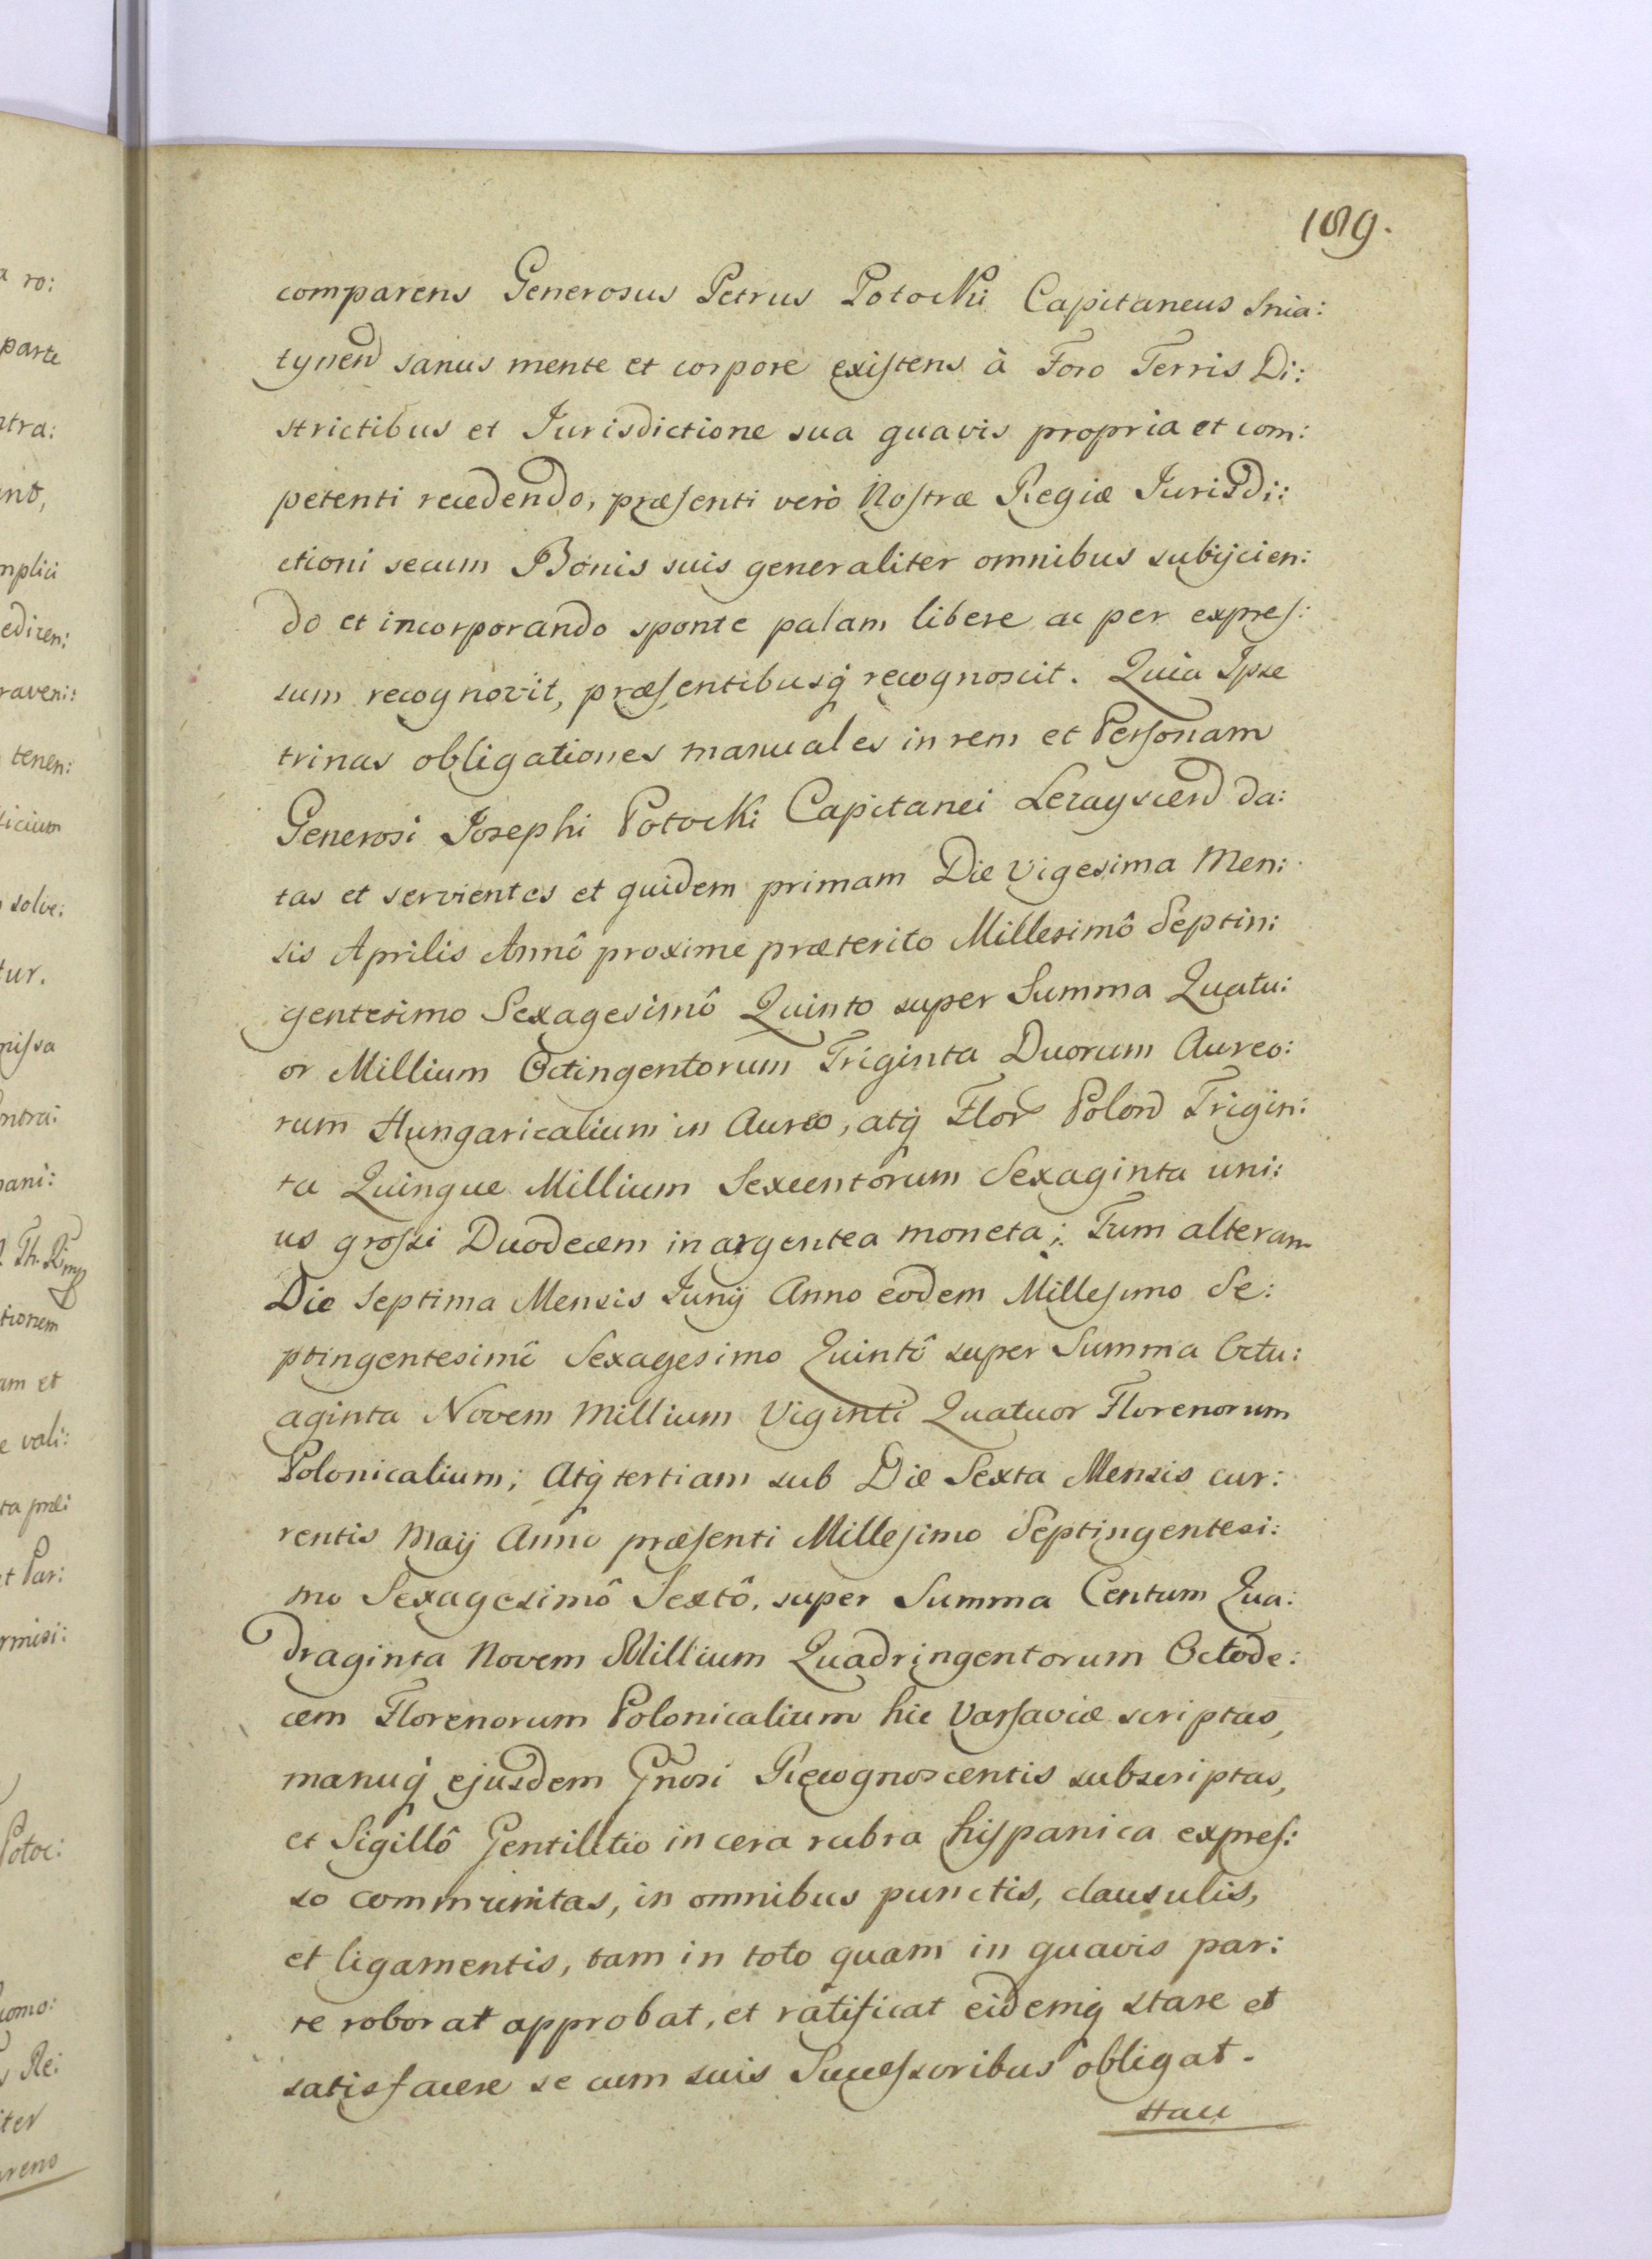 189.
comparens Generosus Petrus Potocki Capitaneus Snia:
tynen sanus mente et corpore existens à Foro Terris Di:
strictibus et Jurisdictione sua quavis propria et com:
petenti recedendo, præsenti verò Nostræ Regiæ Jurisdi:
ctioni secum Bonis suis generaliter omnibus subijcien:
do et incorporando sponte palam libere ac per expres:
sum recognovit, præsentibusq recognoscit. Quia Ipse
trinas obligationes manuales in rem et Personam
Generosi Josephi Potocki Capitanei Lezayscen da:
tas et servientes et quidem primam Die Vigesima Men:
sis Aprilis Annô proxime præterito Millesimô Septin:
gentesimo Sexagesimô Quinto super Summa Quatu:
or Millium Octingentorum Triginta Duorum Aureo:
rum Hungaricalium in Aureo, atq Flor Polon Trigin:
ta Quinque Millium Sexcentorum Sexaginta uni:
us grossi Duodecem in argentea moneta; Tum alteram
Die Septima Mensis Junij Anno eodem Millesimo Se:
ptingentesimô Sexagesimo Quintô super Summa Octu:
aginta Novem Millium Viginti Quatuor Florenorum
Polonicalium; Atq tertiam sub Die Sexta Mensis cur:
rentis Maij Anno præsenti Millesimo Septingentesi:
mo Sexagesimô Sextô, super Summa Centum Qua:
draginta Novem Millium Quadringentorum Octode:
cem Florenorum Polonicalium hic Varsaviæ scriptas,
manuq ejusdem Gnosi Recognoscentis subscriptas,
et Sigillô Gentilitio in cera rubra hispanica expres:
so communitas, in omnibus punctis, clausulis,
et ligamentis, tam in toto quam in quavis par:
te roborat approbat, et ratificat eidemq stare et
satisfacere se cum suis Successoribus obligat.